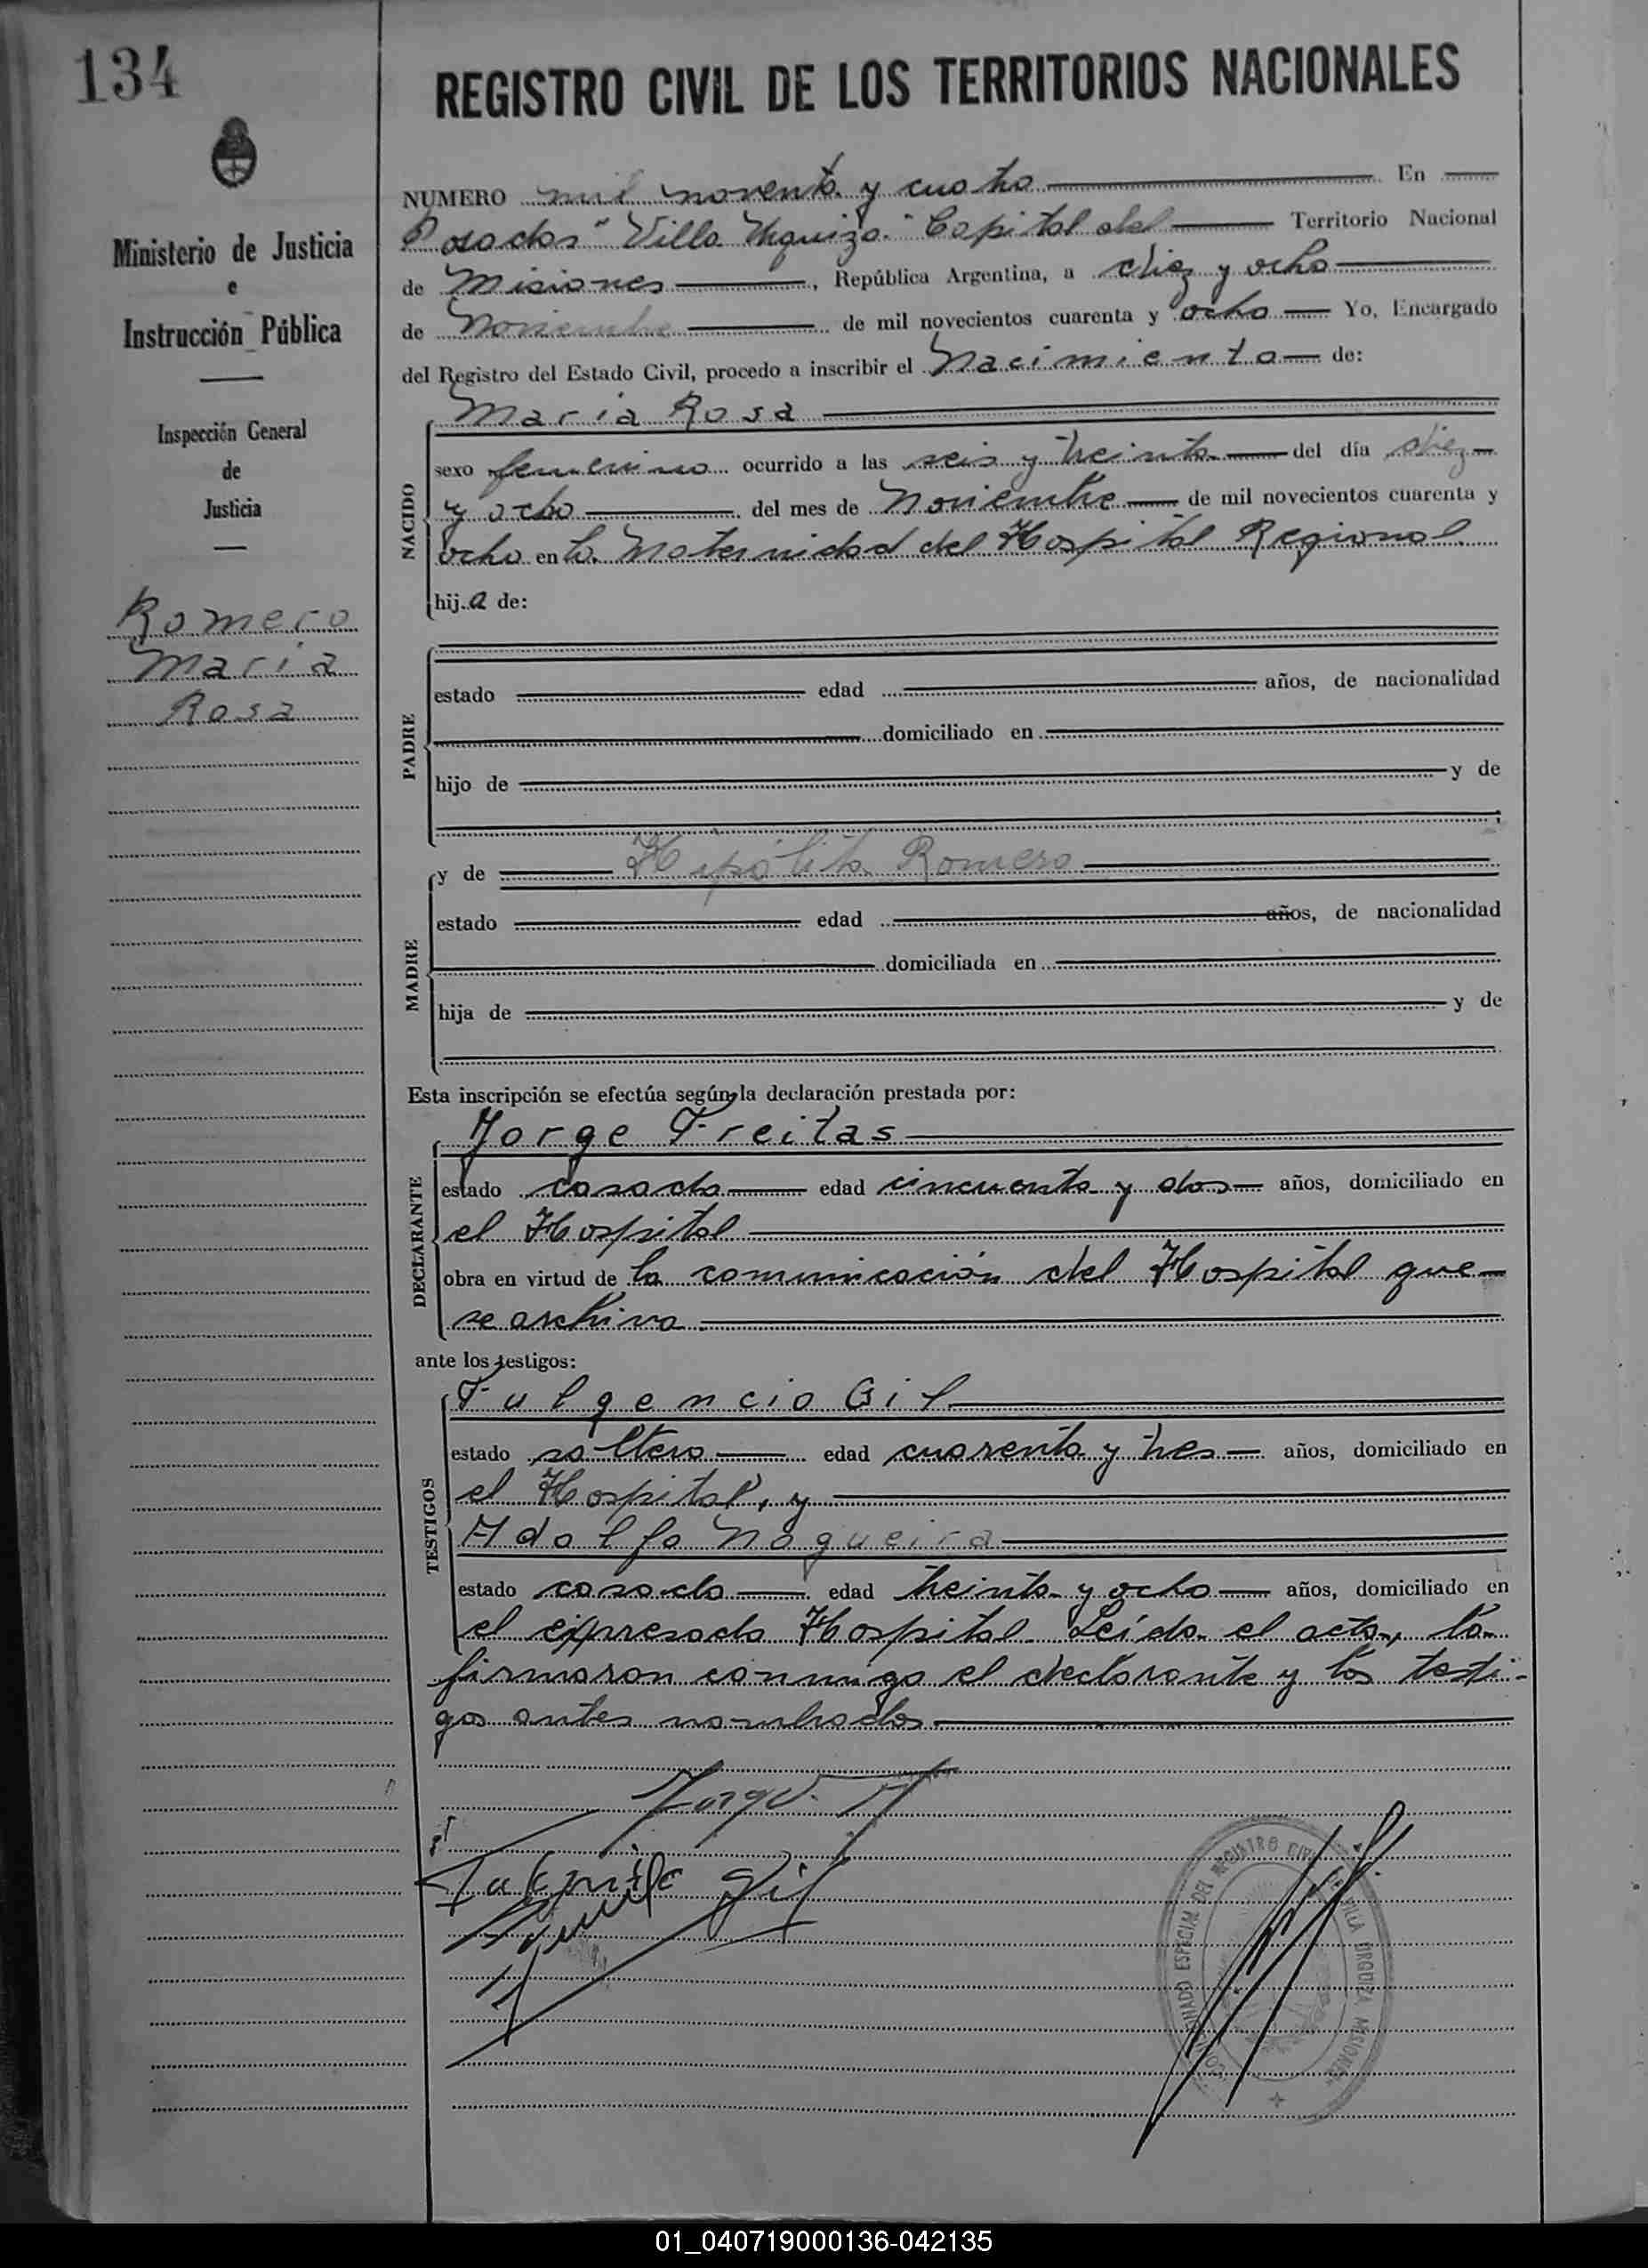 134
REGISTRO CIVIL DE LOS TERRITORIOS NACIONALES
Ministerio de Justicia
e
Instrucción Pública
Inspección General
de
Justicia
Romero
Maria
Rosa
NUMERO mil noventa y cuatro En
Posadas "Villa Urquiza" Capital del Territorio Nacional
de Misiones, República Argentina, a diez y ocho
de Noviembre de mil novecientos cuarenta y ocho Yo, Encargado
del Registro del Estado Civil, procedo a inscribir el Nacimiento de:
Maria Rosa
NACIDO
sexo femenino ocurrido a las seis y treinta del día diez
y ocho del mes de Noviembre de mil novecientos cuarenta y
ocho en la Maternidad del Hospital Regional.
hij.a de:
PADRE
estado edad años, de nacionalidad
domiciliado en
hijo de y de
;
MADRE
y de Hipólita Romero
estado edad años, de nacionalidad
domiciliada en
hija de y de
Esta inscripción se efectúa según la declaración prestada por:
DECLARANTE
Jorge Freitas
estado casado edad cincuenta y dos años, domiciliado en
el Hospital
obra en virtud de la comunicación del Hospital que
se archiva
ante los testigos:
TESTIGOS
Fulgencio Gil
estado soltero edad cuarenta y tres años, domiciliado en
el Hospital, y
Adolfo Nogueira
estado casado edad treinta y ocho años, domiciliado en
el expresado Hospital. Leída el acta, la
firmaron conmigo el declarante y los testi-
gos antes nombrados.
Jorge
Gil
REGISTRO CIVIL
VILLA URQUIZA MISIONES
01_040719000136-042135